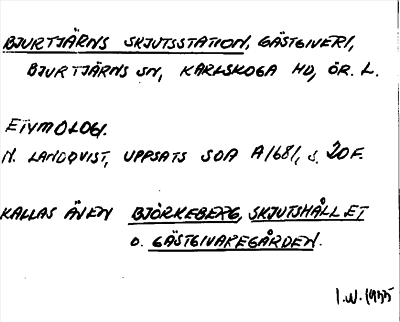 BJURTJÄRNS SKJUTSSTATION, GÄSTGIVERI,
BJURTJÄRNS SN, KARLSKOGA HD, ÖR. L.
ETYMOLOGI.
N. LANDQVIST, UPPSATS SOA A1681, s. 20 F.
KALLAS ÄVEN BJÖRKEBERG, SKJUTSHÅLLET
O. GÄSTGIVAREGÅRDEN.
I.W. 1955